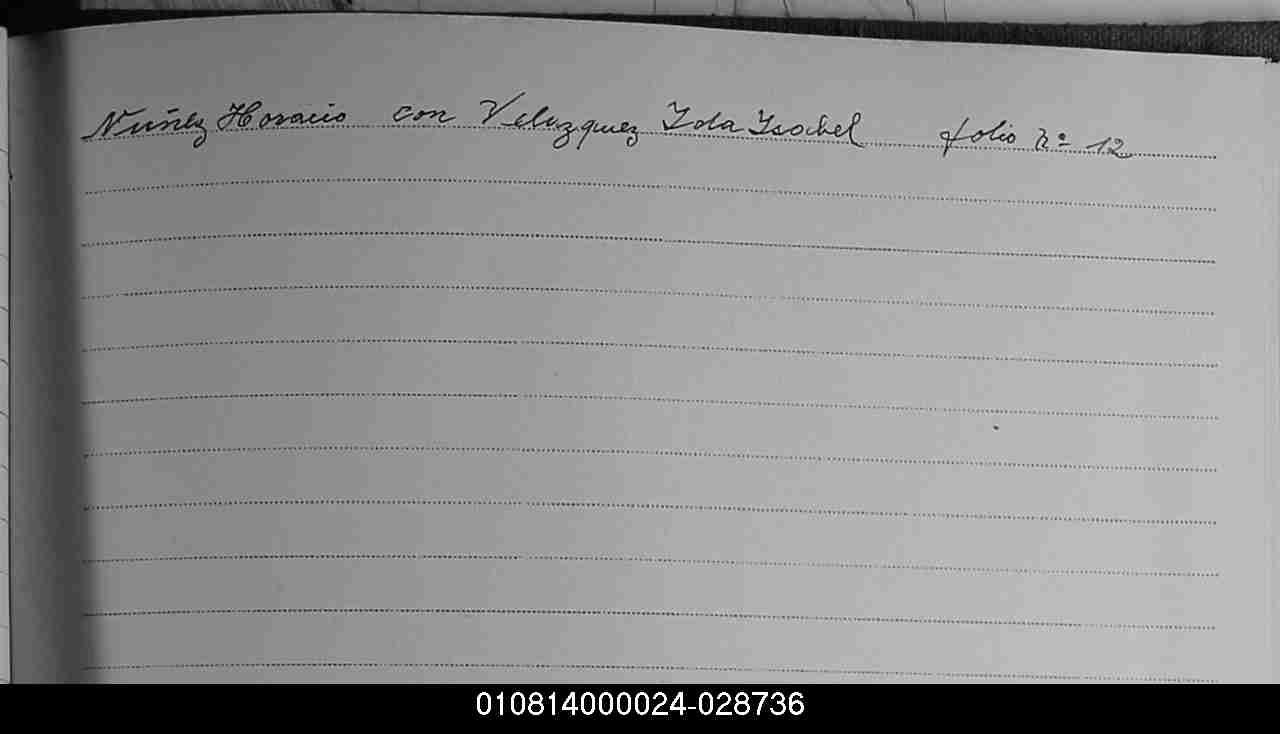 Nuñez Horacio con Velazquez Ida Isabel folio nº 12
010814000024-028736